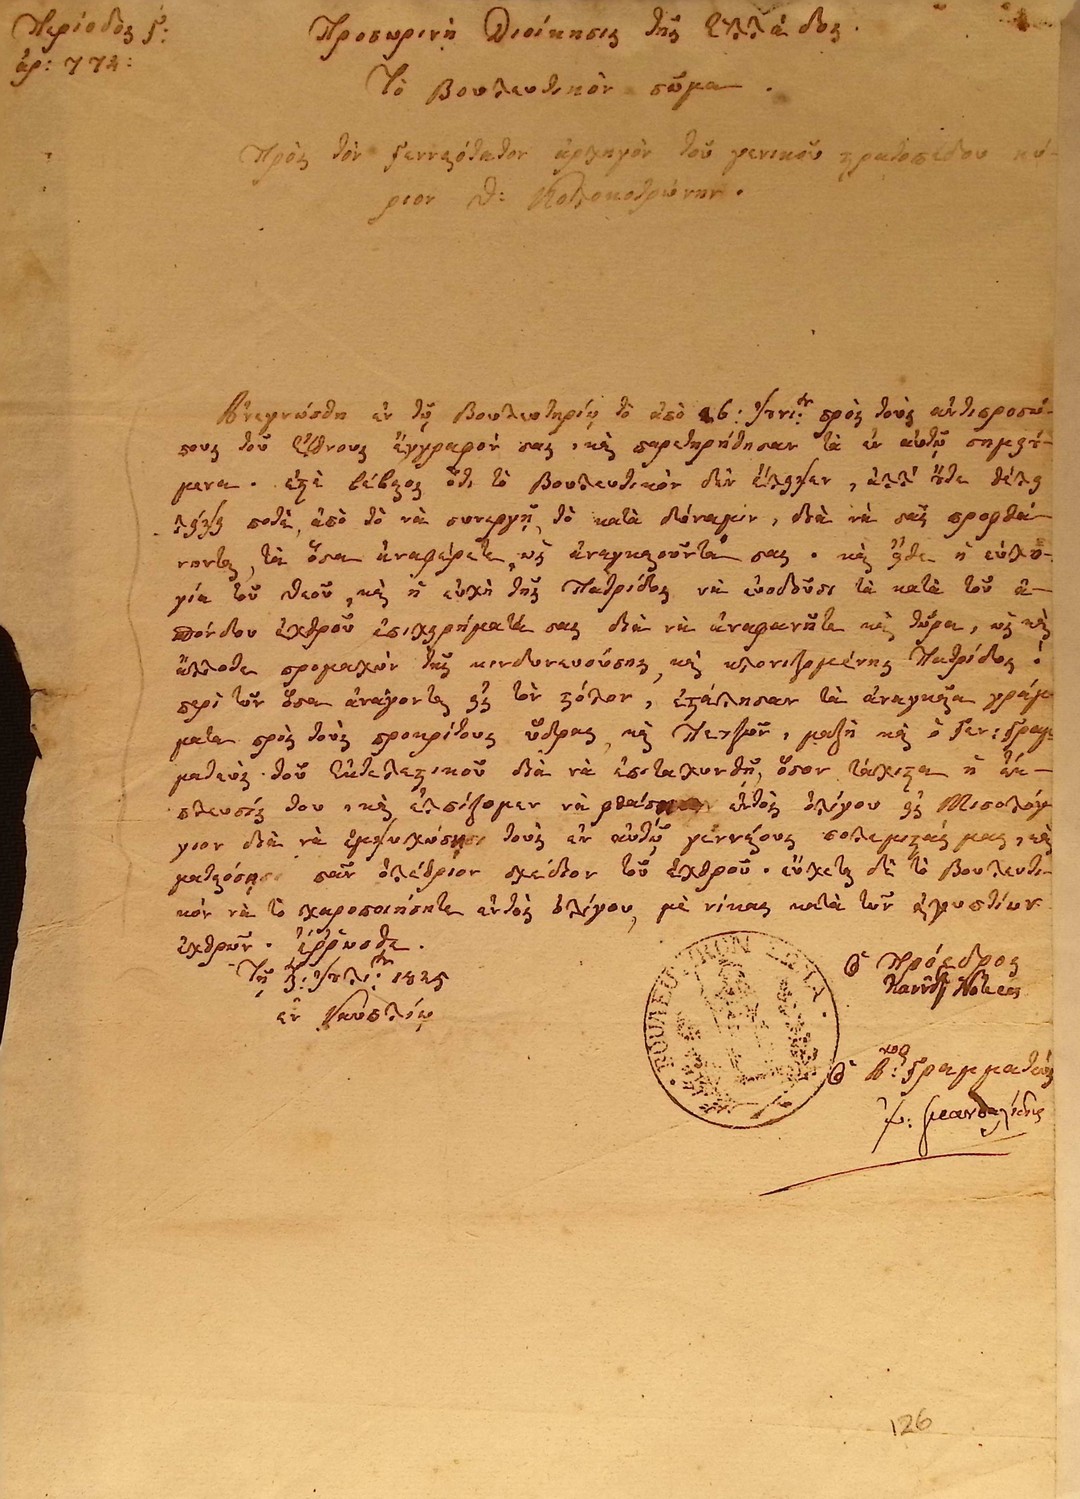 Περίοδος Γ:
ἀρ: 774:
Προσωρινὴ Διοίκησις τῆς Ἑλλάδος.
Τὸ Βουλευτικὸν σῶμα.
Πρὸς τὸν Γενναιότατον ἀρχηγὸν τοῦ γενικοῦ στρατοπέδου κύ-
ριον Θ: Κολοκοτρώνην.
Ἀνεγνώσθη ἐν τῷ Βουλευτηρίῳ τὸ ἀπὸ 26: πρὸς τοὺς ἀντιπροσώ-
πους τοῦ Ἔθνους ἔγγραφόν σας, καὶ παρετηρήθησαν τὰ ἐν αὐτῷ σημειού-
μενα. ἔστὲ βέβαιος ὅτι τὸ Βουλευτικὸν δὲν ἔλειψεν, ἀλλ' οὔτε θέλει
λείψει ποτὲ, ἀπὸ τὸ νὰ συνεργῇ τὸ κατὰ δύναμιν, διὰ νὰ σᾶς προφθά-
νωνται, τὰ ὅσα ἀναφέρετε, ὡς ἀναγκαιοῦντά σας. καὶ εἴθε ἡ εὐλο-
γία τοῦ Θεοῦ, καὶ ἡ εὐχὴ τῆς Πατρίδος νὰ εὐοδώσι τὰ κατὰ τοῦ ἀ-
σπόνδου ἐχθροῦ ἐπιχειρήματά σας διὰ νὰ ἀναφανῆτε καὶ τῶρα, ὡς καὶ
ἄλλοτε προμαχῶν τῆς κινδυνευούσης, καὶ κλονιζομένης Πατρίδος!
περὶ τῶν ὅσα ἀνάγονται εἰς τὸν στόλον, ἐστάλησαν τὰ ἀναγκαῖα γράμ-
ματα πρὸς τοὺς προκρίτους ὕδρας, καὶ Πετζῶν, μαζὴ καὶ ὁ Γεν: Γραμ-
ματεὺς τοῦ Ἐκτελεστικοῦ διὰ νὰ ἐπιταχυνθῇ, ὅσον τάχιστα ἡ ἔκ-
πλευσίς του, καὶ ἐλπίζομεν νὰ φθάσῃ ἐντὸς ὀλίγου εἰς Μισολόγ-
γιον διὰ νὰ ἐμψυχώσῃ τοὺς ἐν αὐτῷ γενναίους πολεμιστάς μας, καὶ
ματαιόσῃ πᾶν ὀλέθριον σχέδιον τοῦ ἐχθροῦ. εὔχεται δὲ τὸ Βουλευτι-
κὸν νὰ τὸ χαροποιήσητε ἐντὸς ὀλίγου, μὲ νίκας κατὰ τῶν
ἐχθρῶν. ἔῤῥωσθε.
1825
ἐν Ναυπλίῳ
ΒΟΥΛΕΥΤΙΚΟΝ ΣΩΜΑ.
Ὁ Πρόεδρος
Ὁ Α: Γραμματεὺς
126